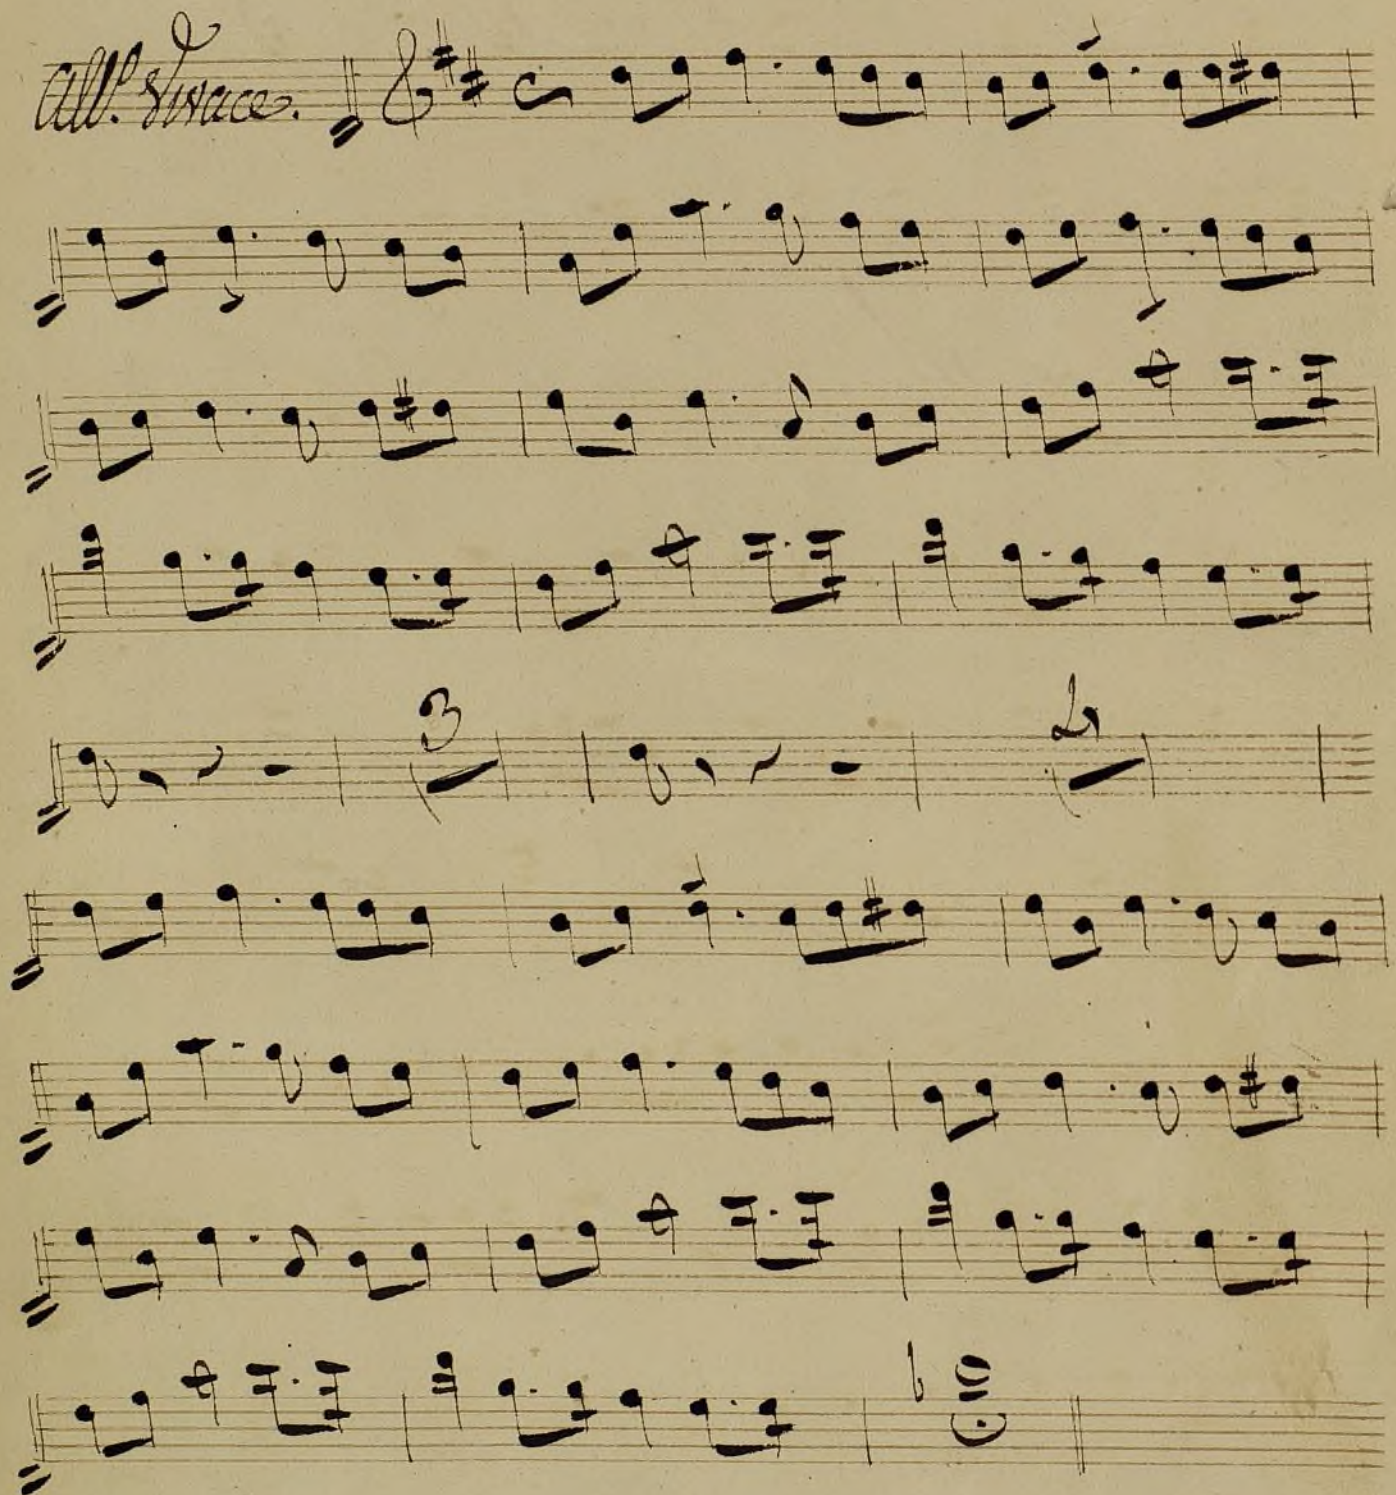 All.º Vivace.
3
2